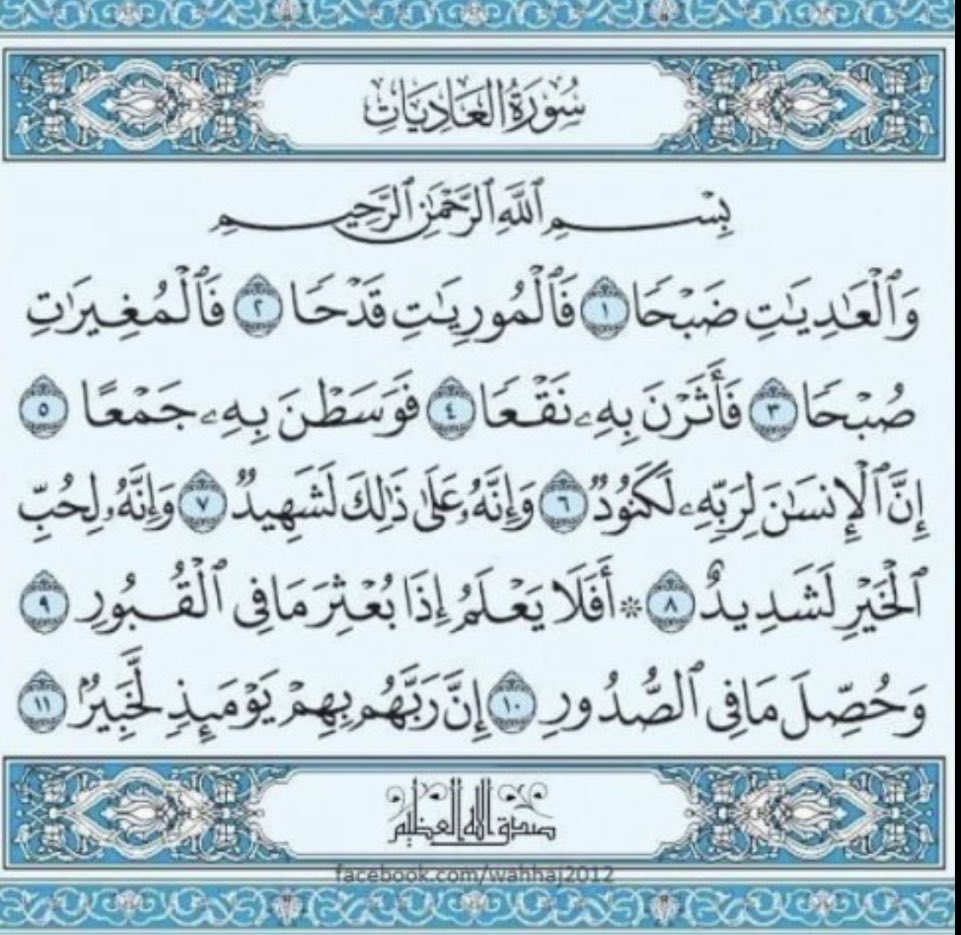 سُورَةُ العَادِيَاتِ
بِسْمِ ٱللَّهِ ٱلرَّحْمَٰنِ ٱلرَّحِيمِ
وَٱلْعَٰدِيَٰتِ ضَبْحًا ١ فَٱلْمُورِيَٰتِ قَدْحًا ٢ فَٱلْمُغِيرَٰتِ
صُبْحًا ٣ فَأَثَرْنَ بِهِۦ نَقْعًا ٤ فَوَسَطْنَ بِهِۦ جَمْعًا ٥
إِنَّ ٱلْإِنسَٰنَ لِرَبِّهِۦ لَكَنُودٌ ٦ وَإِنَّهُۥ عَلَىٰ ذَٰلِكَ لَشَهِيدٌ ٧ وَإِنَّهُۥ لِحُبِّ
ٱلْخَيْرِ لَشَدِيدٌ ٨ ۞ أَفَلَا يَعْلَمُ إِذَا بُعْثِرَ مَا فِى ٱلْقُبُورِ ٩
وَحُصِّلَ مَا فِى ٱلصُّدُورِ ١٠ إِنَّ رَبَّهُم بِهِمْ يَوْمَئِذٍ لَّخَبِيرٌۢ ١١
صدق الله العظيم
facebook.com/wahhaj2012